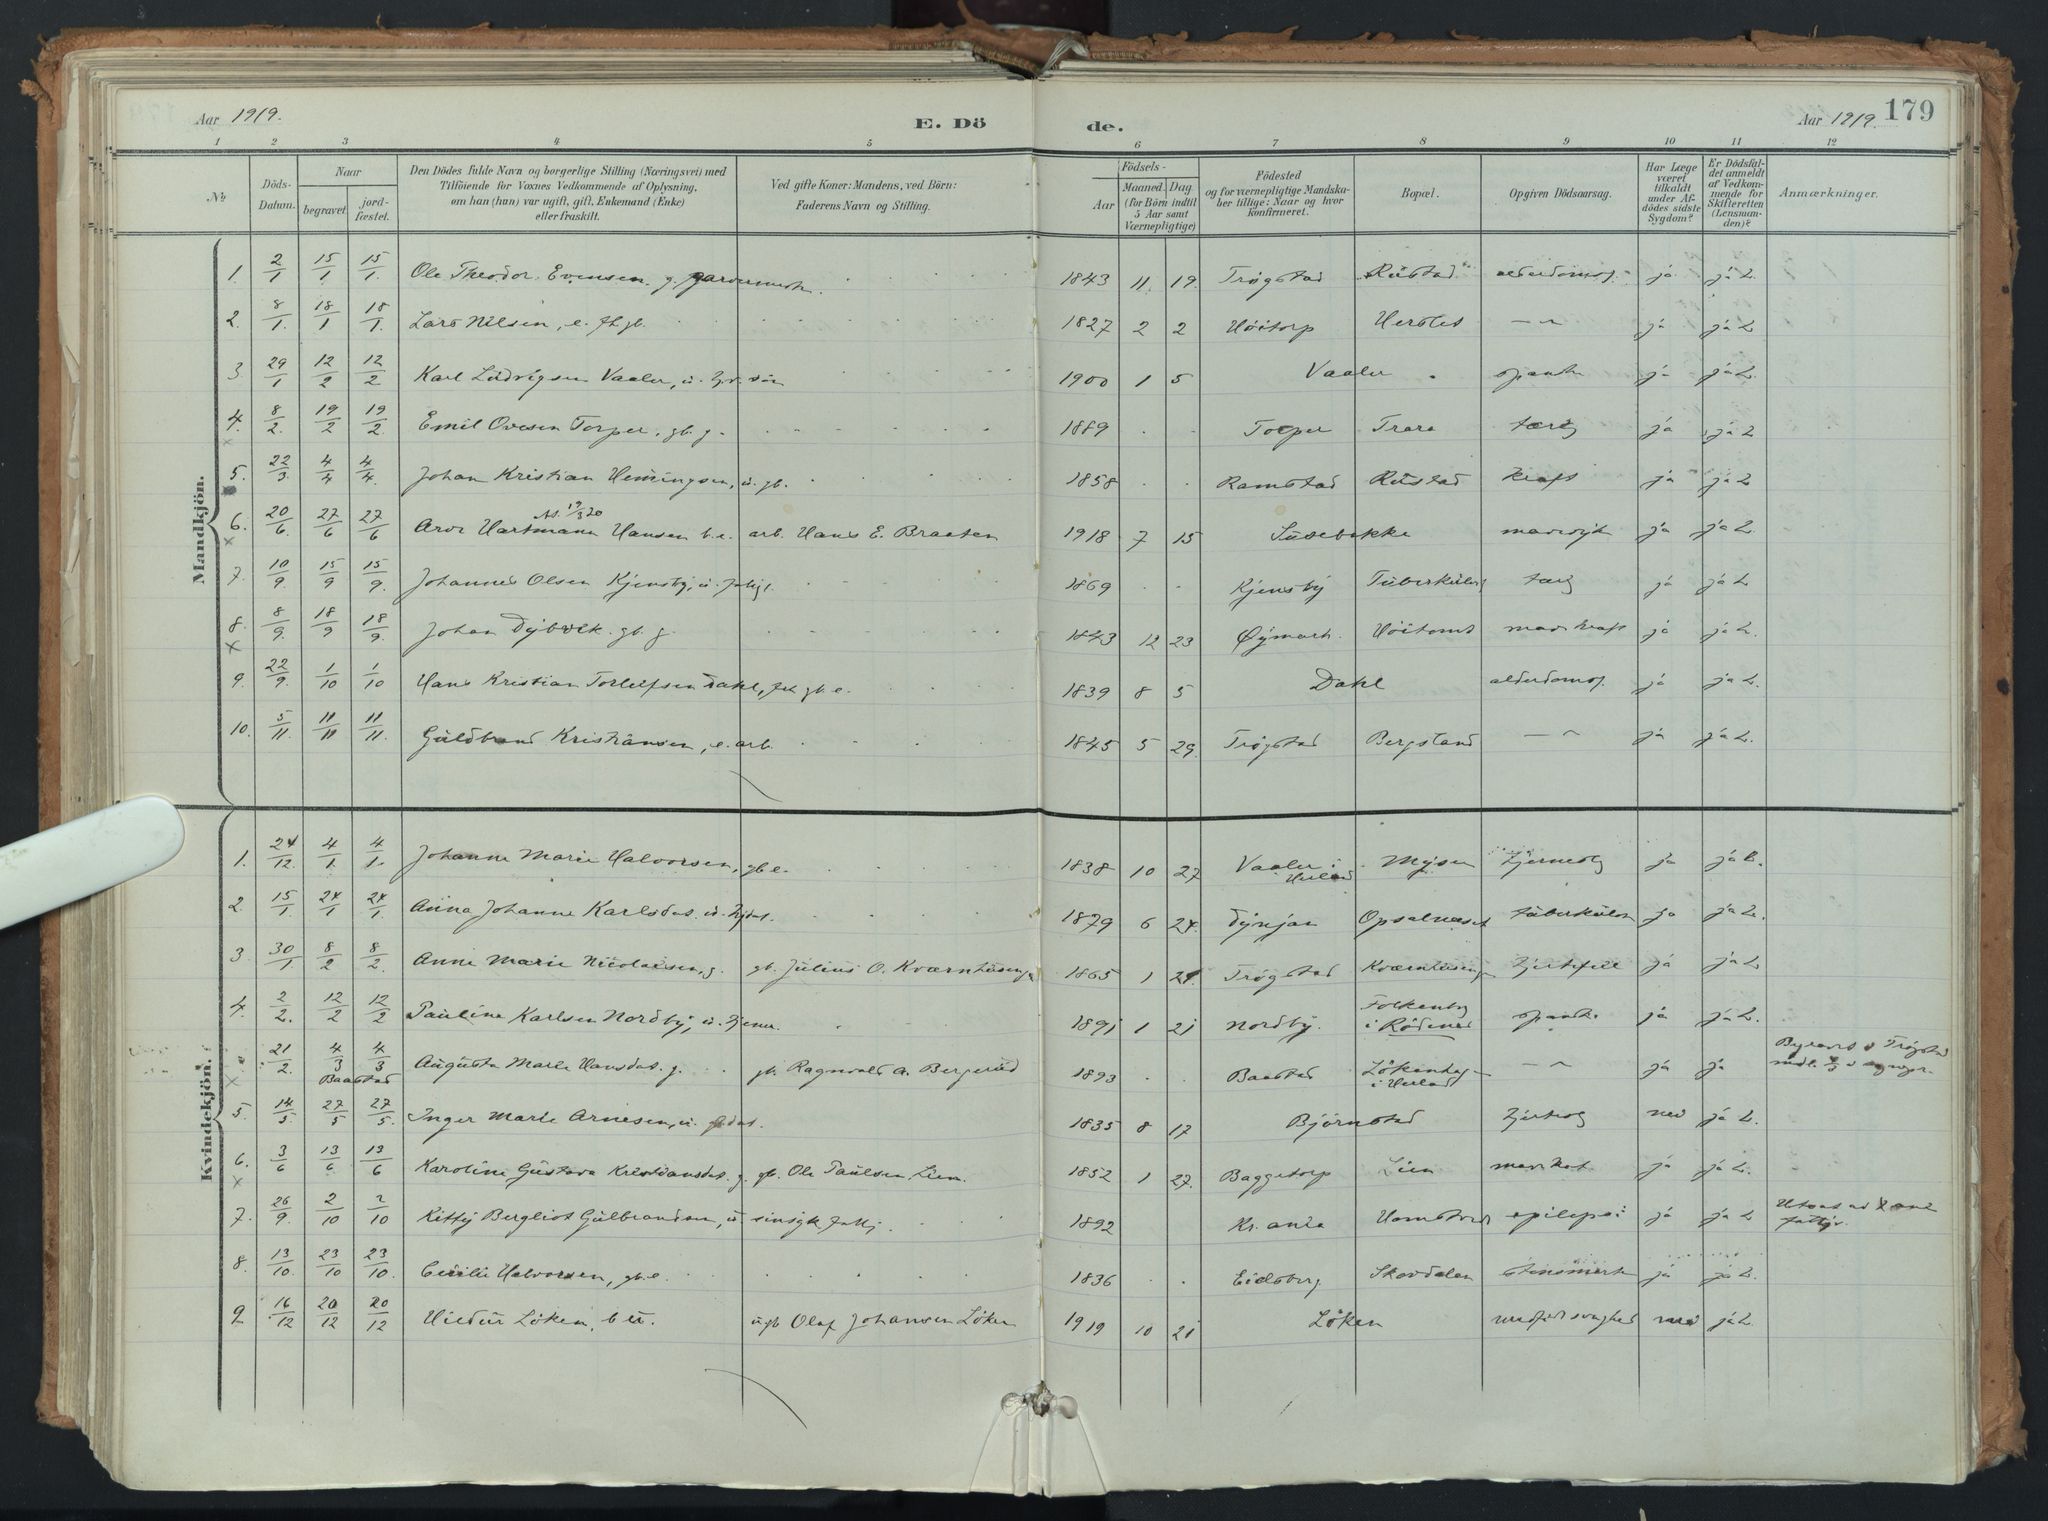 Aar 1919.
E. Dö
de.
Aar 1919. 179
1 2 3 4 5 6 7 8 9 10 11 12
Nr
Döds-Datum.
Naar
begravet.
jord-fæstet.
Den Dödes fulde Navn og borgerlige Stilling (Næringsvei) med
Tilföiende for Voxnes Vedkommende af Oplysning,
om han (hun) var ugift, gift, Enkemand (Enke)
eller fraskilt.
Ved gifte Koner: Mandens, ved Börn:
Faderens Navn og Stilling.
Födsels-
Aar
Maaned. Dag.
(for Börn indtil
5 Aar samt
Værnepligtige)
Födested
og for værnepligtige Mandska-
ber tillige: Naar og hvor
konfirmeret.
Bopæl.
Opgiven Dödsaarsag.
Har Læge
været
tilkaldt
under Af-
dödes sidste
Sygdom?
Er Dödsfal-
det anmeldt
af Vedkom-
mende for
Skifteretten
(Lensman-
den)?
Anmærkninger.
Mandkjön.
1. 2/1 15/1 15/1. Ole Theodor Evensen. g. 1843 11. 19. Trøgstad Rüstad alderdomsf. ja ja L
2. 8/1. 18/1 18/1. Lars Nilsen, e. fh gb. 1827 2 2 Höitorp Herslet —"— ja ja L
3. 29/1 12/2 12/2 Karl Lüdvigsen Vaaler, ü. søn 1900 1 5 Vaaler spansk ja ja L.
4. x 8/2. 19/2 19/2. Emil Ovesen Torper, gb. g. 1889 Torper Trara tærg ja ja L
5. 22/3. 4/4 4/4. Johan Kristian Hemingsen, ü. gb. 1858 Ramstad Rüstad kræft ja ja L
6. x 20/6. 27/6 27/6 Arvr Hartmann Hansen b. e. arb. Hans E. Braaten 1918 7 15 Süsebakke mavesyk ja ja L.
7. 10/9. 15/9 15/9. Johannes Olsen Kjensby, ü. 1869 Kjensby Tüberkülos tærg ja ja L
8. x 8/9. 18/9 18/9. Johan Dybvek. gb. g. 1843 12 23 Øymark. Höitomt mavekræft ja ja L.
9. 22/9. 1/10 1/10 Hans Kristian Torleifsen Dahl, fh gb. e. 1839 8 5 Dahl alderdomsf. ja ja L.
10. 5/11. 11/11 11/11. Güldbrand Kristiansen, e. arb. 1845 5 29. Trøgstad Bergsland —"— ja ja L.
Kvindekjön.
1. 24/12. 4/1. 4/1. Johanne Marie Halvorsen, gb e. 1838 10 27 Vaaler i Herland Mysen ja ja L.
2. 15/1. 24/1 24/1. Anna Johanne Karlsdat. ü. 1879 6 24. Dynjan Opsalneset tüberkülos ja ja L.
3. 30/1. 8/2 8/2. Anne Marie Nicolaisen, g. gb. Jülius O. Kværnhüsengen 1865 1 24. Trøgstad Kværnhüsengen hjertefeil ja ja L
4. 2/2. 12/2 12/2 Pauline Karlsen Nordby, ü. tjener. 1891 1 21 Nordby. Folkenborg i Rödenes spansk. ja ja L.
x 21/2. 4/3 4/3 Baastad Augusta Marie Hansdat. g. gb. Ragnvald A. Bergerüd 1893 Baastad Løkenhag i Herland —"— ja ja Begravet i Trøgstad
5. 14/5. 27/5 27/5. Inger Marie Arnesen, ü. 1835 8 17 Björnstad nei ja L.
6. x 3/6 13/6 13/6 Karoline Güstava Kristiansdat. g. gb. Ole Paülsen Lien. 1852 1 27. Baggetorp Lien ja ja L.
7. 26/9. 2/10 2/10 Kitty Bergliot Gülbrandsen, ü sinsyk 1892 Kr. ania epilepsi ja ja L
8. 13/10. 23/10 23/10. Cecilie Halvorsen, gb. e. 1836 Eidsberg Skovdalen ja ja L.
9 16/12 20/12 20/12 Hildür Löken, b ü. ü gb Olaf Johansen Löken 1919 10 21 Löken medfødt svaghed nei ja L.